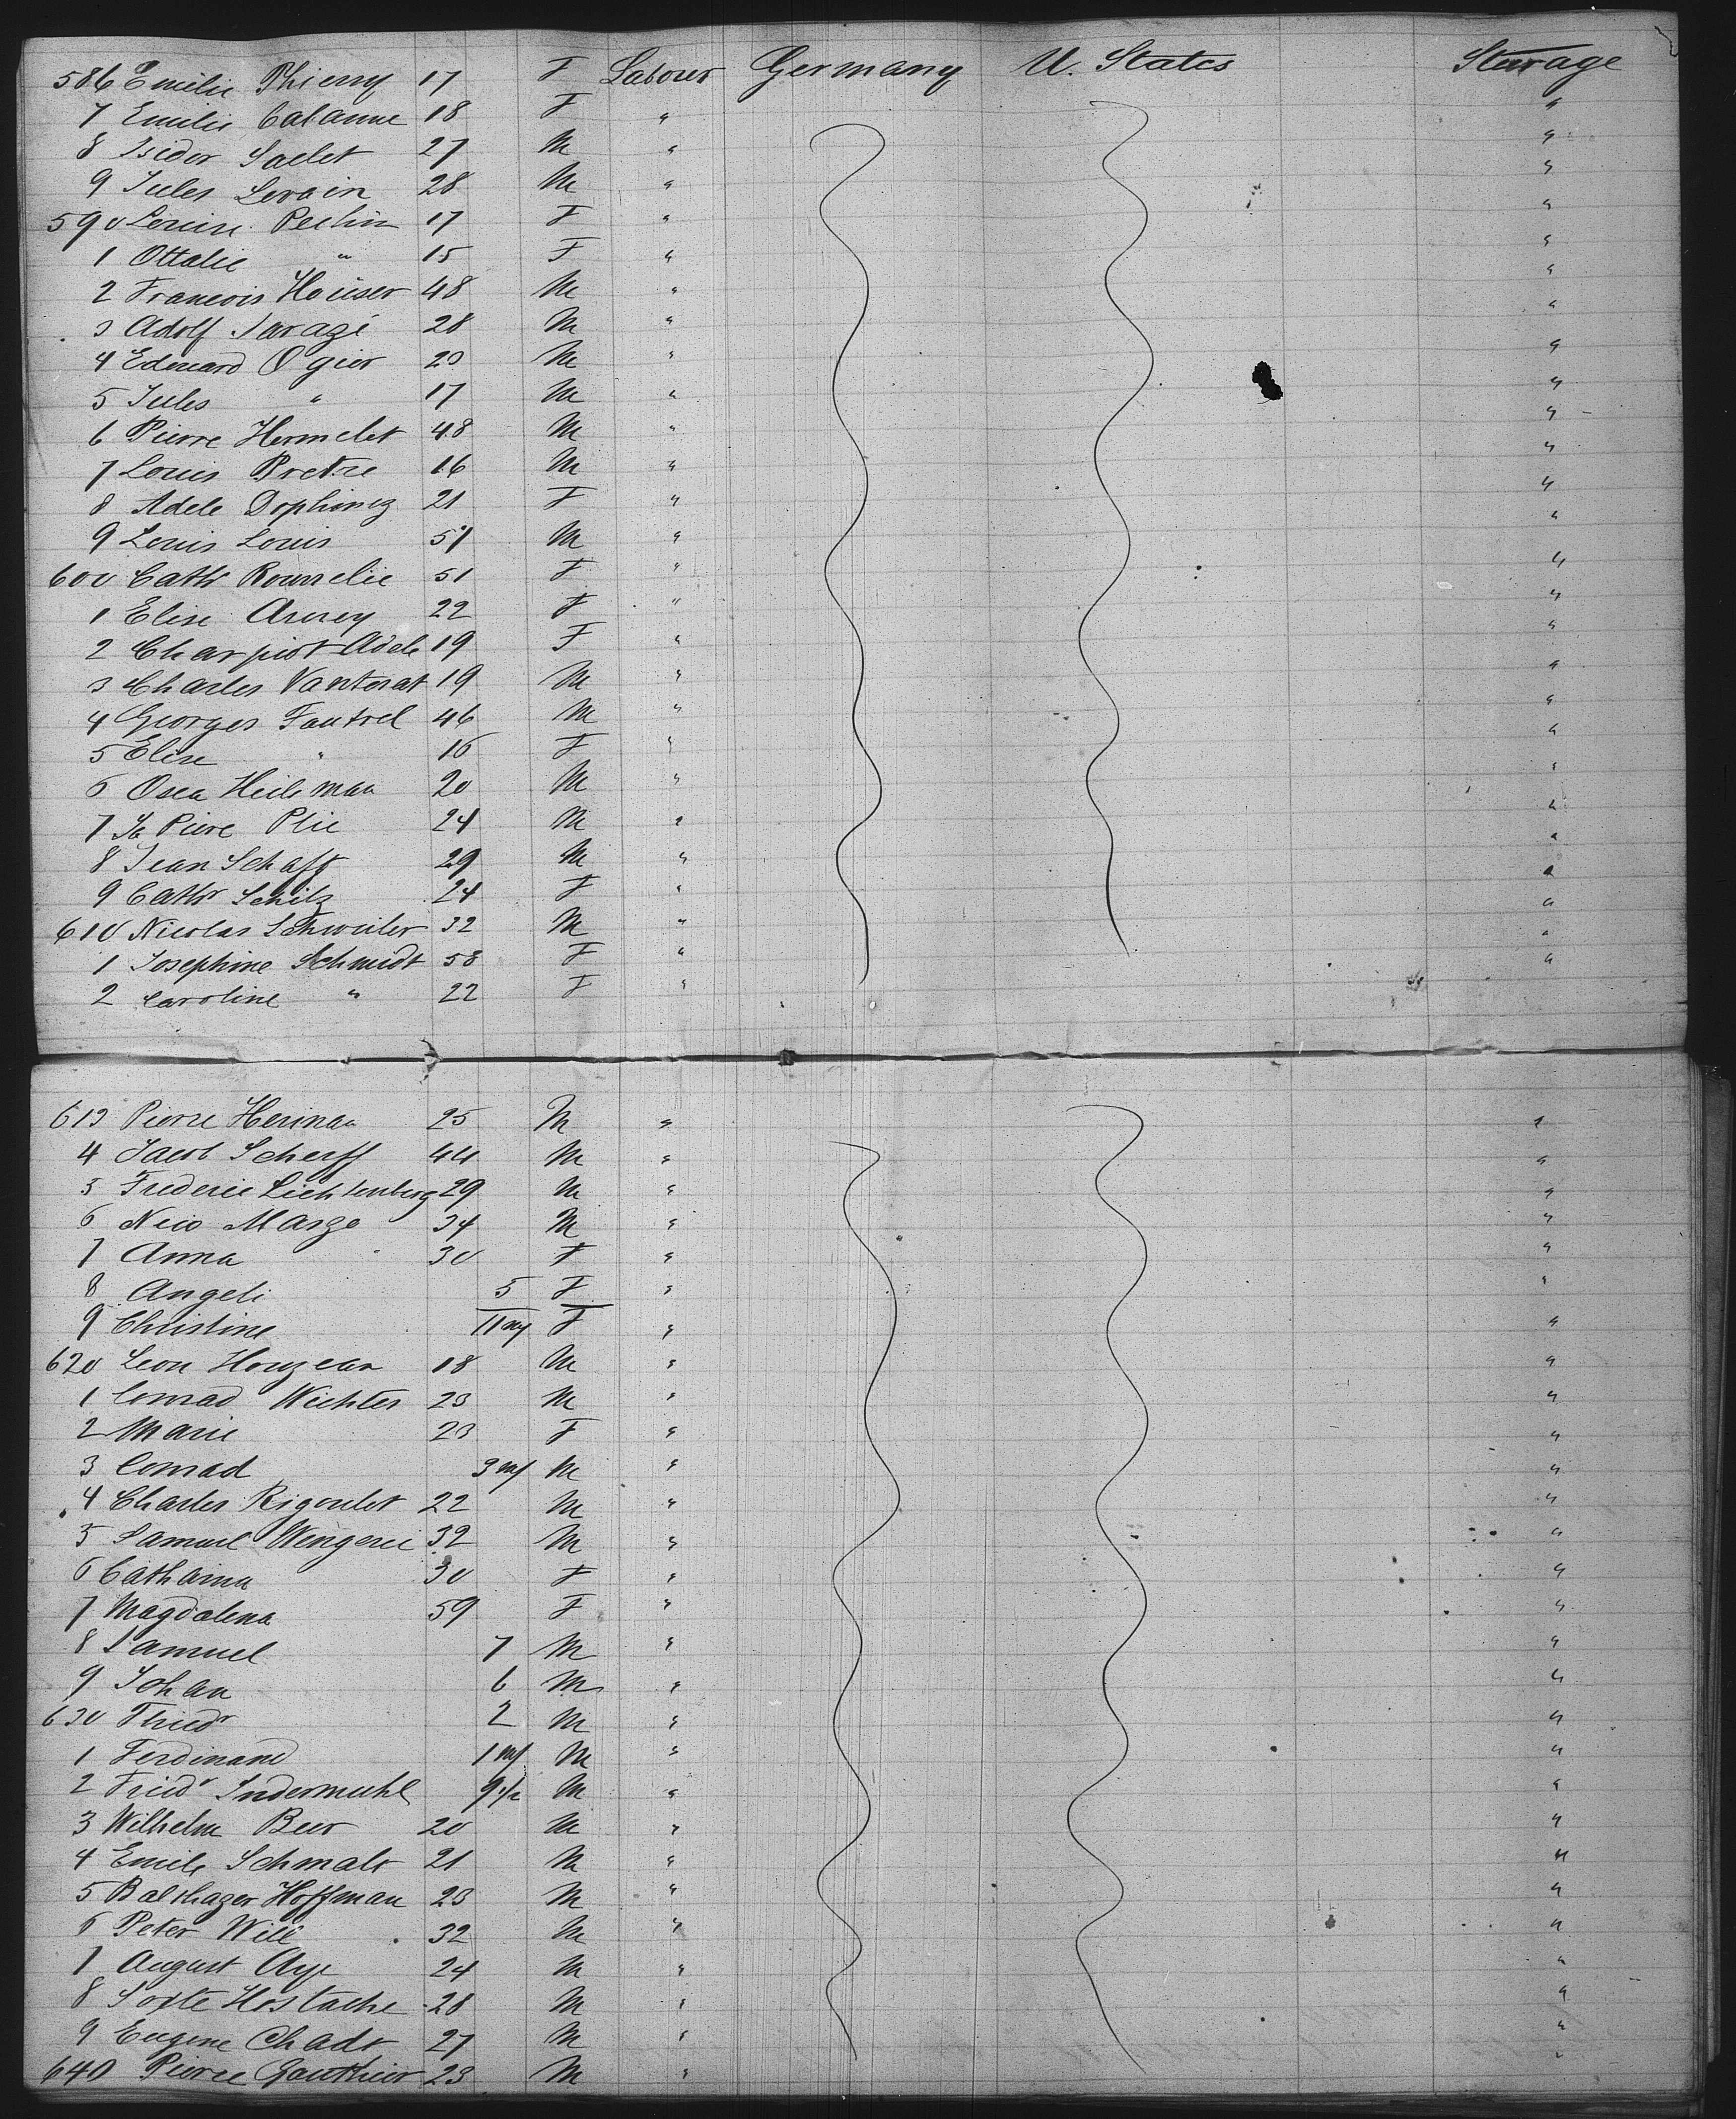 586 Emilie Thierry 17 F Labourer Germany U. States Sturage
7 Emilie Calame 18 F " "
8 Isidor Saclet 27 M " "
9 Jules Lorain 28 M " "
590 Louise Pechin 17 F " "
1 Ottalie " 15 F " "
2 Francois Houser 48 M " "
3 Adolf Saragé 28 M " "
4 Edouard Ogier 20 M " "
5 Jules " 17 M " "
6 Pierre Hermelet 48 M " "
7 Louis Bretre 16 M " "
8 Adele 21 F " "
9 Louis Louis 51 M " "
600 Cathr Rounelie 51 F " "
1 Elise 22 F " "
2 Charpiot Adele 19 F " "
3 Charles Vanterat 19 M " "
4 Georges Fautrel 46 M " "
5 Elise " 16 F " "
6 Heileman 20 M " "
7 Piere Plie 24 M " "
8 Jean Schaff 29 M " "
9 Cathr Schilz 24 F " "
610 Nicolas Schweiler 32 M " "
1 Josephine Schmidt 58 F " "
2 Caroline " 22 F " "
613 Pierre Herman 25 M " "
4 Jacob Scherff 44 M " "
5 Frederic Lichtenberg 29 M " "
6 Nico Marge 34 M " "
7 Anna " 30 F " "
8 Angeli 5 F " "
9 Christine 11 m/ F " "
620 Leon Houzean 18 M " "
1 Conrad Wichter 23 M " "
2 Marie 23 F " "
3 Conrad 3 m/ M " "
4 Charles Rigoulet 22 M " "
5 Samuel Wengerie 32 M " "
6 Catharina 30 F " "
7 Magdalena 59 F " "
8 Samuel 7 M " "
9 Johan 6 M " "
630 Friedr 2 M " "
1 Ferdinand 1 m/ M " "
2 Friedr Indermuhl 9 1/2 M " "
3 Wilhelm Beer 20 M " "
4 Emile Schmalt 21 M " "
5 Balthazer Hoffman 23 M " "
6 Peter Will 32 M " "
7 August Aye 24 M " "
8 Sixte Hostache 28 M " "
9 Eugene Chadt 27 M " "
640 Pierre Gauthier 23 M "